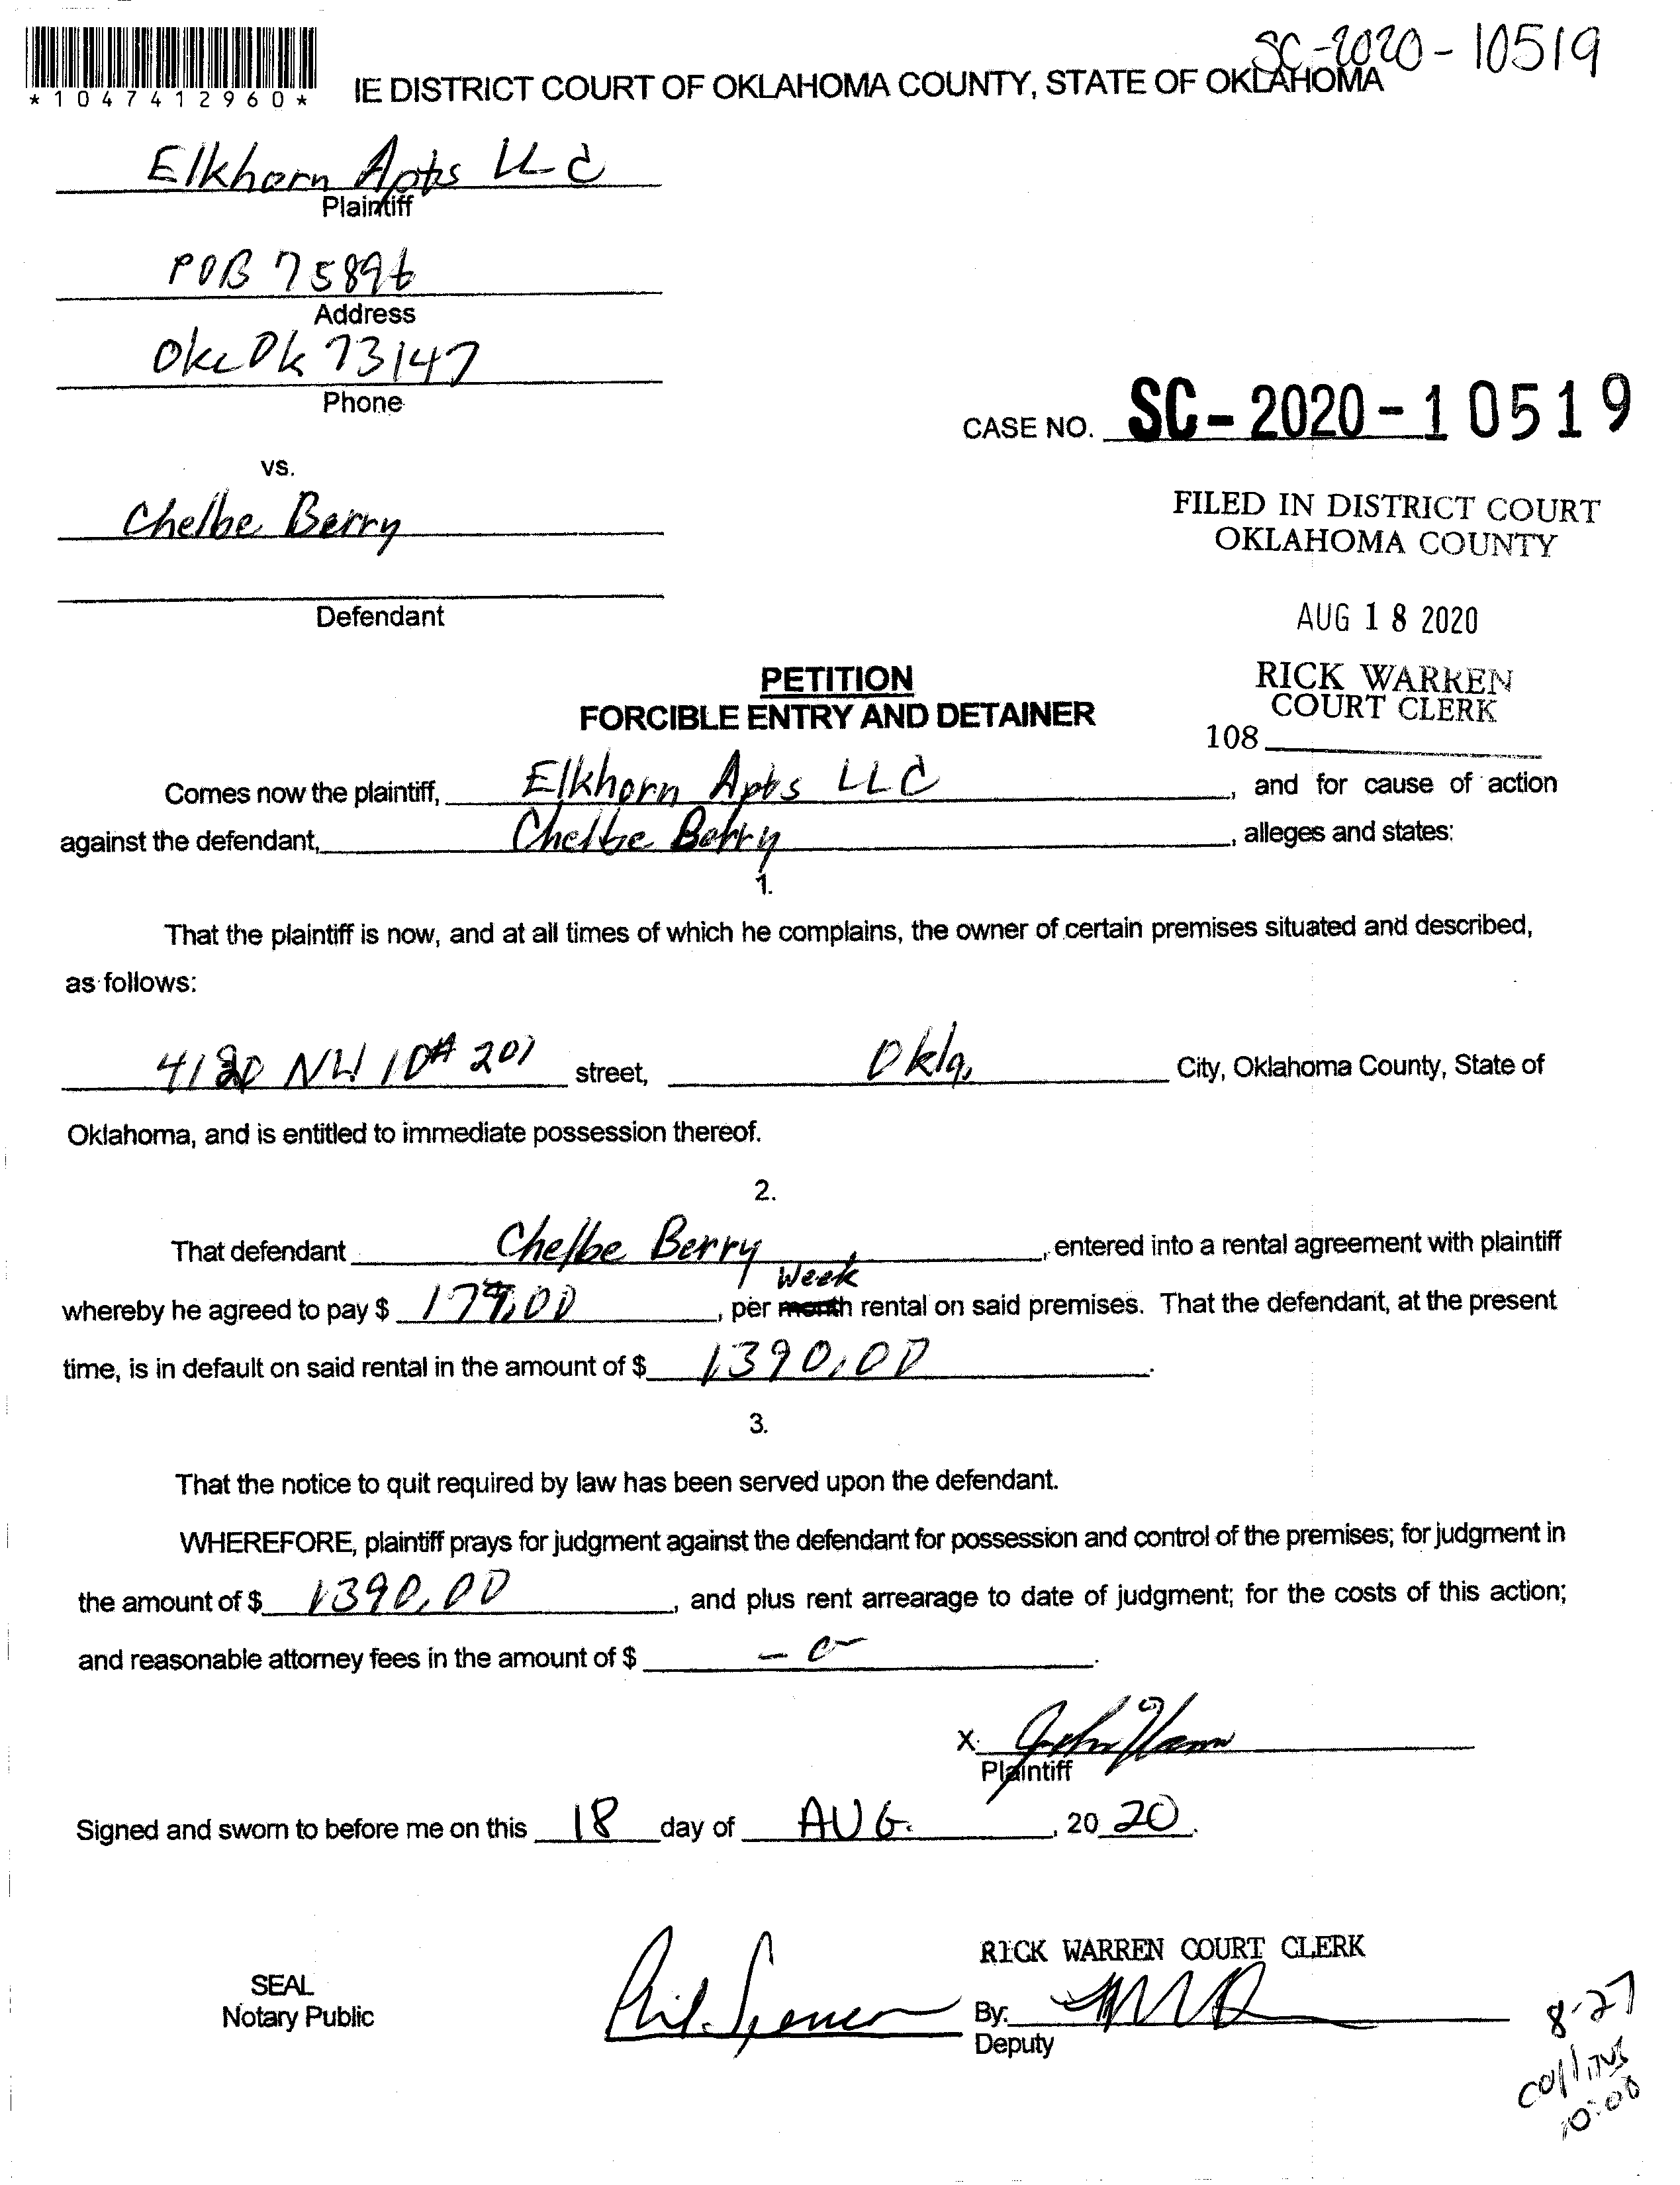 SC-2020-10519
*1047412960*
IE DISTRICT COURT OF OKLAHOMA COUNTY, STATE OF OKLAHOMA
Elkhorn Apts LLC
Plaintiff
POB 75896
Address
Okc Ok 73147
Phone
CASE NO. SC-2020-10519
vs.
Chelbe Berry
FILED IN DISTRICT COURT
OKLAHOMA COUNTY
Defendant
AUG 18 2020
PETITION
FORCIBLE ENTRY AND DETAINER
RICK WARREN
COURT CLERK
108
Comes now the plaintiff, Elkhorn Apts LLC, and for cause of action
against the defendant, Chelbe Berry, alleges and states:
1.
That the plaintiff is now, and at all times of which he complains, the owner of certain premises situated and described,
as follows:
NW 10# 201 street, Okla. City, Oklahoma County, State of
Oklahoma, and is entitled to immediate possession thereof.
2.
That defendant Chelbe Berry, entered into a rental agreement with plaintiff
Week
whereby he agreed to pay $, per month rental on said premises. That the defendant, at the present
time, is in default on said rental in the amount of $ 1390.00.
3.
That the notice to quit required by law has been served upon the defendant.
WHEREFORE, plaintiff prays for judgment against the defendant for possession and control of the premises; for judgment in
the amount of $ 1390.00, and plus rent arrearage to date of judgment; for the costs of this action;
and reasonable attorney fees in the amount of $ -0-.
X
Plaintiff
Signed and sworn to before me on this 18 day of AUG., 20 20.
RICK WARREN COURT CLERK
SEAL
Notary Public
By:
Deputy
8-27
Collins
10:00